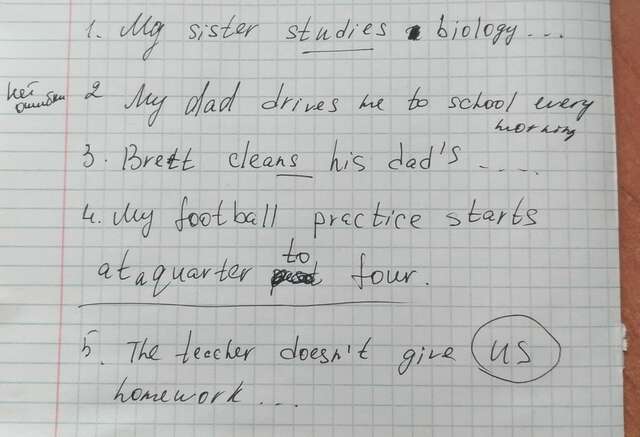 1. My sister studies biology...
нет
ошибки
2 My dad drives me to school every
morning
3. Brett cleans his dad's .....
4. My football practice starts
to
at a quarter four.
5. The teacher doesn't give us
homework...